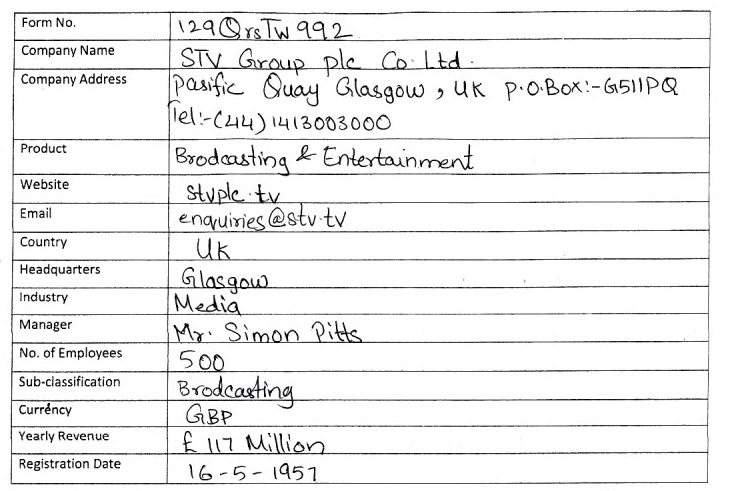 Form No. 129QrsTw992
Company Name STV Group plc Co. Ltd.
Company Address Pasific Quay Glasgow, UK P.O.Box:-G511PQ
Tel:-(44)1413003000
Product Brodcasting & Entertainment
Website stvplc.tv
Email enquiries@stv.tv
Country UK
Headquarters Glasgow
Industry Media
Manager Mr. Simon Pitts
No. of Employees 500
Sub-classification Brodcasting
Currency GBP
Yearly Revenue £ 117 Million
Registration Date 16-5-1957